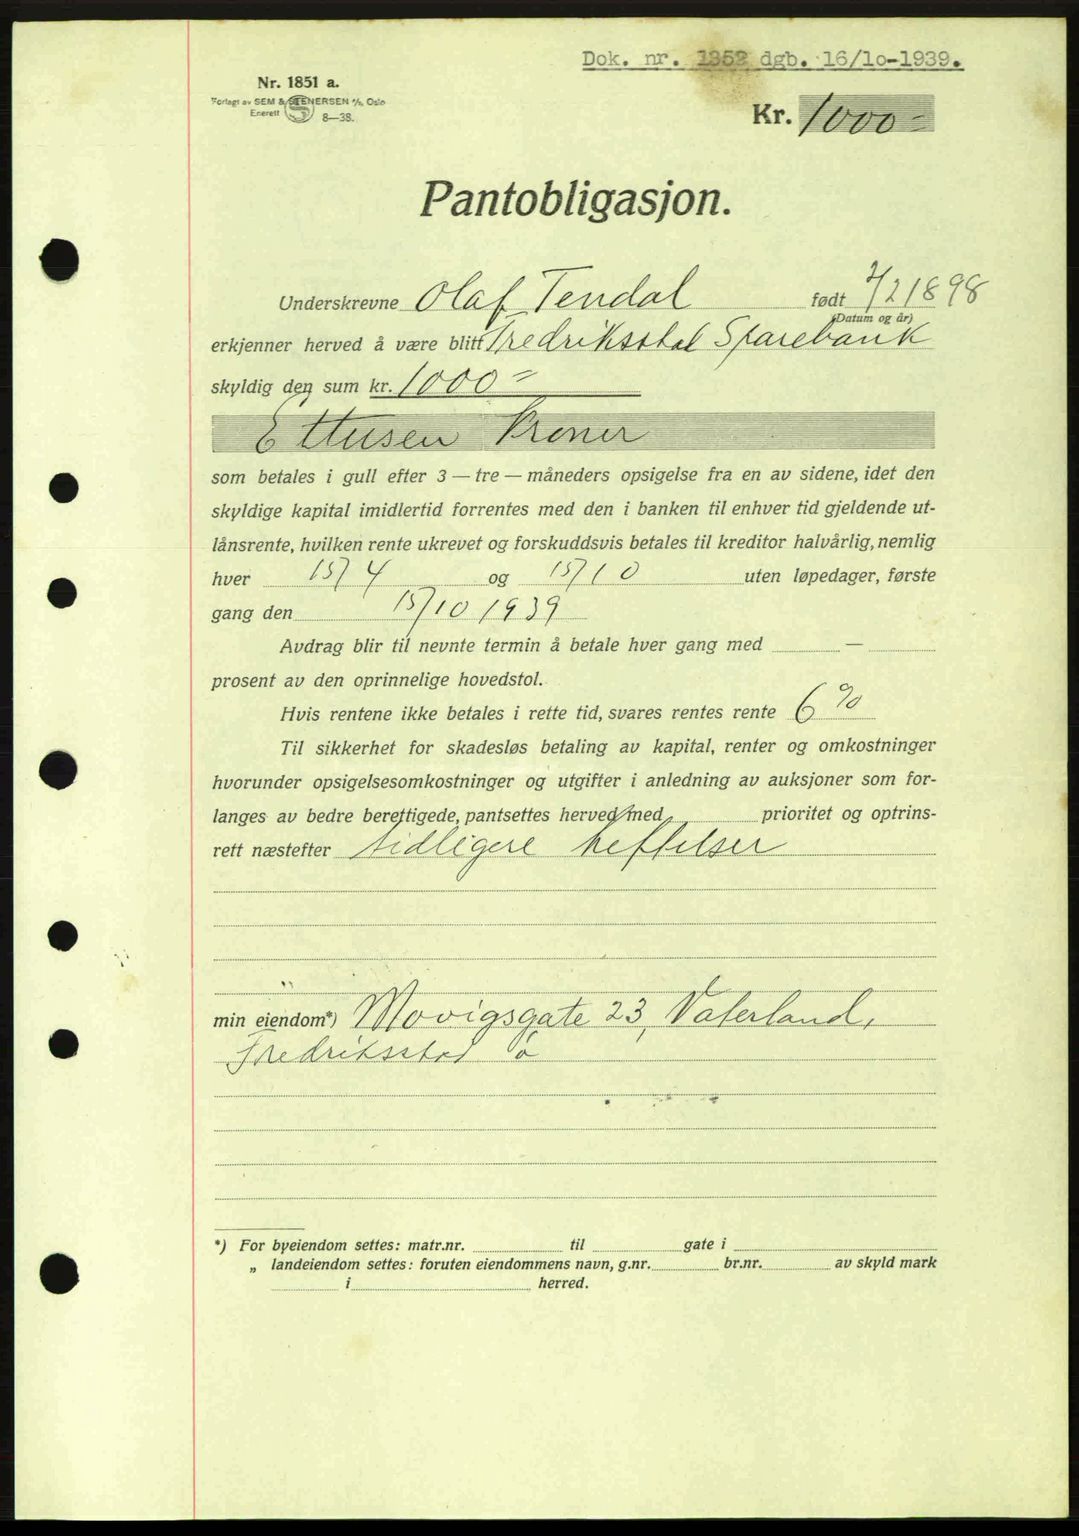 Dok. nr. 1352 dgb. 16/10-1939.
Nr. 1851 a.
Forlagt av SEM & STENERSEN A/S, Oslo
Enerett 8—38.
Kr. 1000 =
Pantobligasjon.
Underskrevne Olaf Tendal født 2/2 1898
(Datum og år)
erkjenner herved å være blitt Fredriksstad Sparebank
skyldig den sum kr. 1000 =
Ettusen Kroner
som betales i gull efter 3 — tre — måneders opsigelse fra en av sidene, idet den
skyldige kapital imidlertid forrentes med den i banken til enhver tid gjeldende ut-
lånsrente, hvilken rente ukrevet og forskuddsvis betales til kreditor halvårlig, nemlig
hver 15/4 og 15/10 uten løpedager, første
gang den 15/10 1939
Avdrag blir til nevnte termin å betale hver gang med —
prosent av den oprinnelige hovedstol.
Hvis rentene ikke betales i rette tid, svares rentes rente 6 %
Til sikkerhet for skadesløs betaling av kapital, renter og omkostninger
hvorunder opsigelsesomkostninger og utgifter i anledning av auksjoner som for-
langes av bedre berettigede, pantsettes herved med prioritet og optrins-
rett næstefter tidligere heftelser
min eiendom*) Movigsgate 23, Vaterland,
Fredriksstad
*) For byeiendom settes: matr.nr. til gate i
„ landeiendom settes: foruten eiendommens navn, g.nr. br.nr. av skyld mark
i herred.